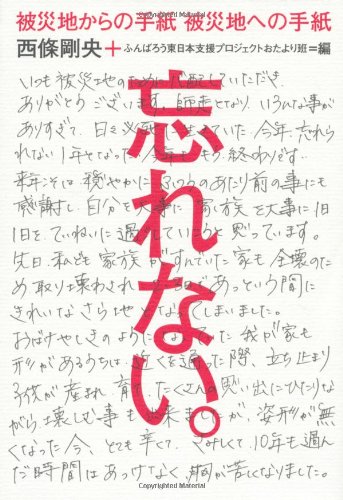 被災地からの手紙 被災地への手紙
西條剛央＋ふんばろう東日本支援プロジェクトおたより班＝編
忘れない。
いつも被災地のために心配していただき
ありがとうございます。師走となり、いろんな事が
ありすぎて、日々必死に生きていた今年、忘れら
れない1年となった今年ももう終わりです。
来年こそは穏やかにふつうのあたり前の事にも
感謝し、自分を大事に、家族を大事に1日
1日を、ていねいに過ごしていこうと思っています。
先日、私ども家族が住んでいた家も全壊のた
め取り壊わされ あっという間に
きれいなさら地となくしまいました。
おばけやしきのように た我が家も
形があるうちは、近くを通った際、立ち止まり
子供が産まれ、育 たくさんの思い出にひたりな
がら、懐しむ事も出来ましたが、姿形が無
くなった今、とても辛くて、さみしくて、10年も過ん
だ時間はあっけなく、胸が苦しくなりました。
Copyrighted Material
Copyrighted Material